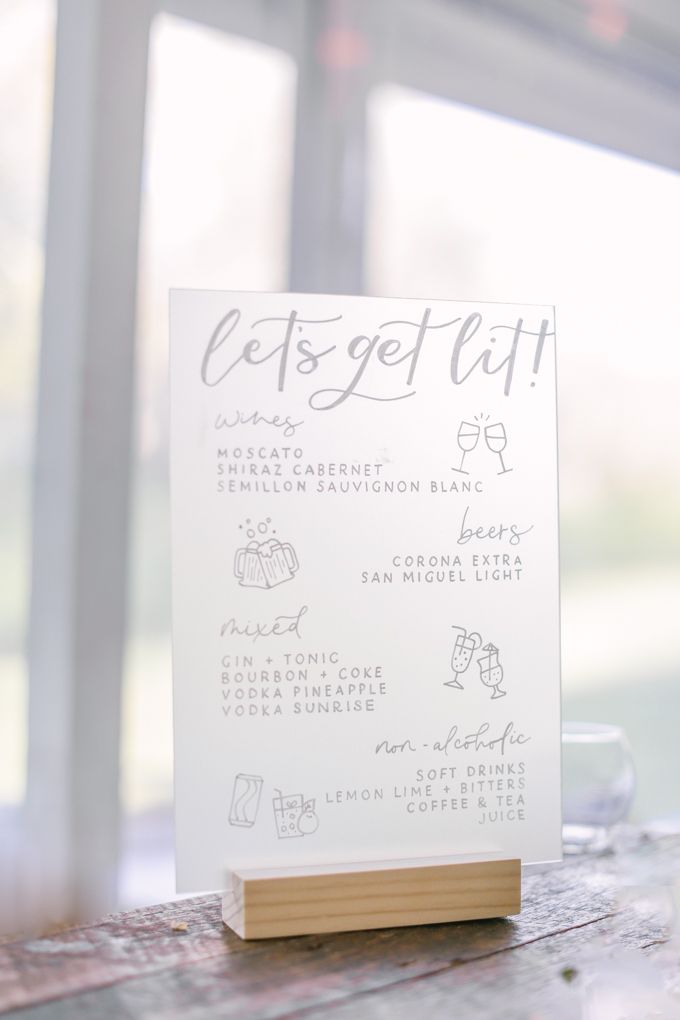 let's get lit!
wines
MOSCATO
SHIRAZ CABERNET
SEMILLON SAUVIGNON BLANC
beers
CORONA EXTRA
SAN MIGUEL LIGHT
mixed
GIN + TONIC
BOURBON + COKE
VODKA PINEAPPLE
VODKA SUNRISE
non-alcoholic
SOFT DRINKS
LEMON LIME + BITTERS
COFFEE & TEA
JUICE